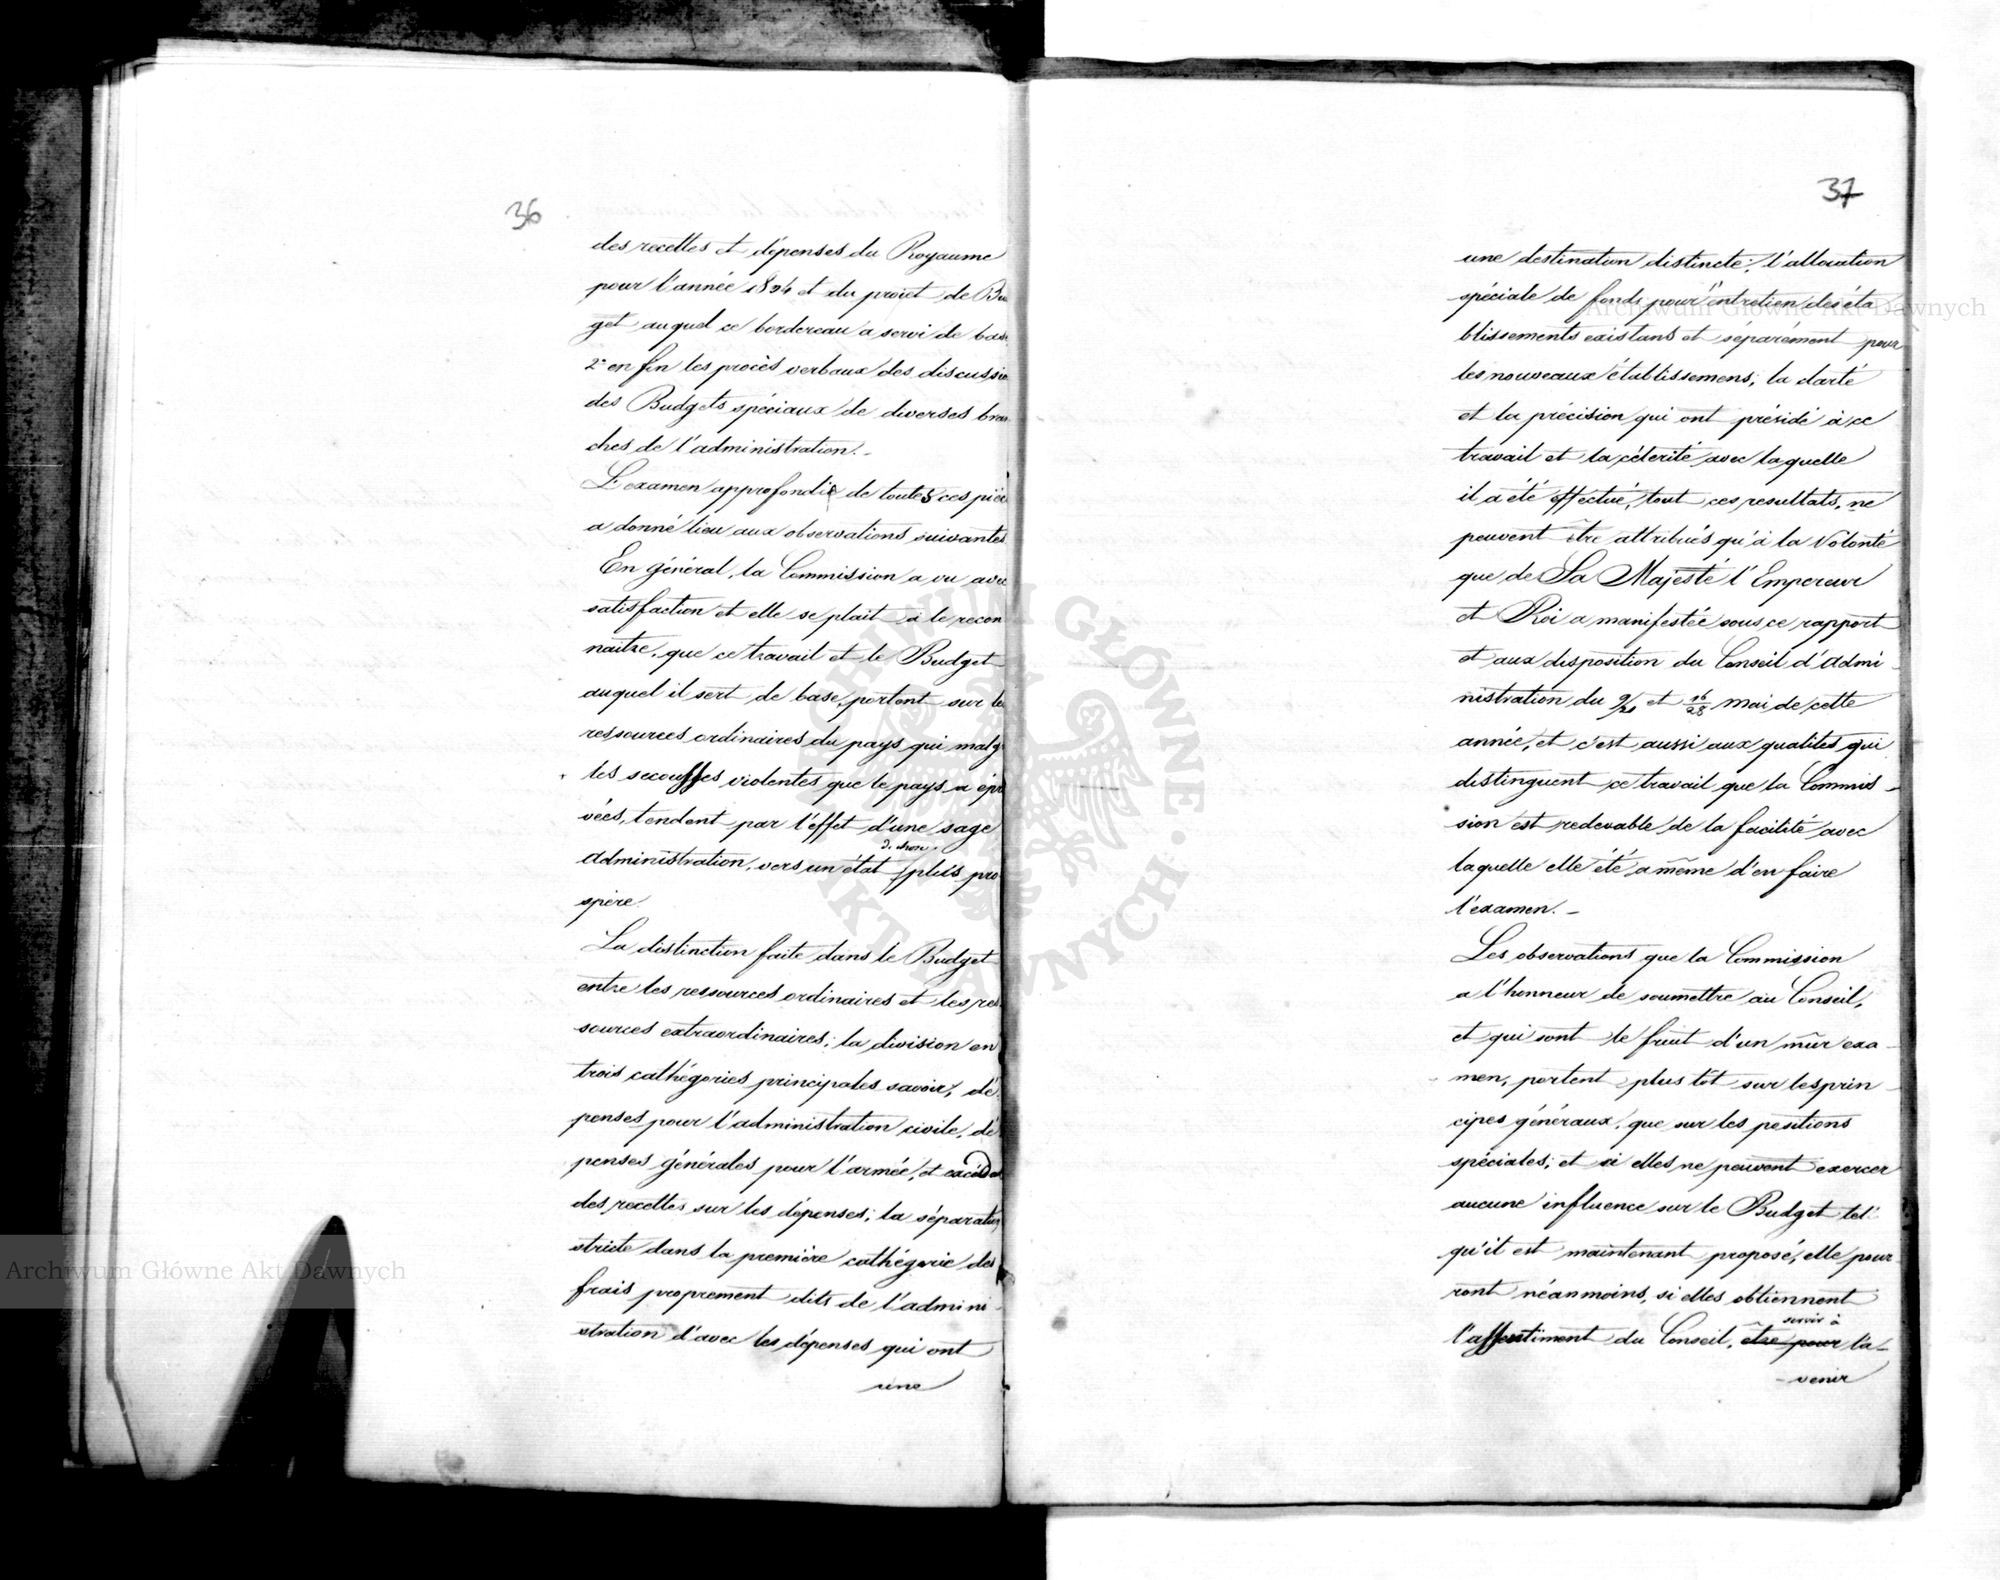 36
des recettes et dépenses du Royaume
pour l'année 1834 et du projet de Bu
get auquel ce bordereau a servi de bas
2° enfin les procès verbaux des discussio
des Budgets spéciaux de diverses bran
ches de l'administration.-
L'examen approfondi de toutes ces pièc
a donné lieu aux observations suivantes
En général, la Commission a vu avec
satisfaction et elle se plait à le recon
naitre, que ce travail et le Budget
auquel il sert de base, portent sur les
ressources ordinaires du pays qui malg
les secousses violentes que le pays a épr
vées, tendent par l'effet d'une sage
administration, vers un état plus pro
spère.
La distinction faite dans le Budget
entre les ressources ordinaires et les res
sources extraordinaires; la division en
trois cathégories principales savoir, dé
penses pour l'administration civile, dé
penses générales pour l'armée, et excéd
des recettes sur les dépenses; la séparation
stricte dans la première cathégorie des
frais proprement dits de l'admini-
stration d'avec les dépenses qui ont
une
37
une destination distincte; l'allocation
spéciale de fonds pour l'entretien des éta
blissements existans et séparément pour
les nouveaux établissemens; la clarté
et la précision qui ont présidé à ce
travail et la célerité avec laquelle
il a été effectué, tout ces resultats, ne
peuvent être attribués qu'à la Volonté
que de Sa Majesté l'Empereur
et Roi a manifestée sous ce rapport
et aux disposition du Conseil d'Admi-
nistration du 9/21 et 16/28 mai de cette
année, et c'est aussi aux qualités qui
distinguent ce travail que la Commis-
sion est redevable de la facilité avec
laquelle elle été a même d'en faire
l'examen.-
Les observations que la Commission
a l'honneur de soumettre au Conseil,
et qui sont le fruit d'un mûr exa-
men, portent plus tôt sur les prin-
cipes généraux, que sur les positions
spéciales; et si elles ne peuvent exercer
aucune influence sur le Budget tel
qu'il est maintenant proposé, elle pour
ront néanmoins, si elles obtiennent
servir à
l'assentiment du Conseil, être pour l'a-
-venir
Archiwum Główne Akt Dawnych
Archiwum Główne Akt Dawnych